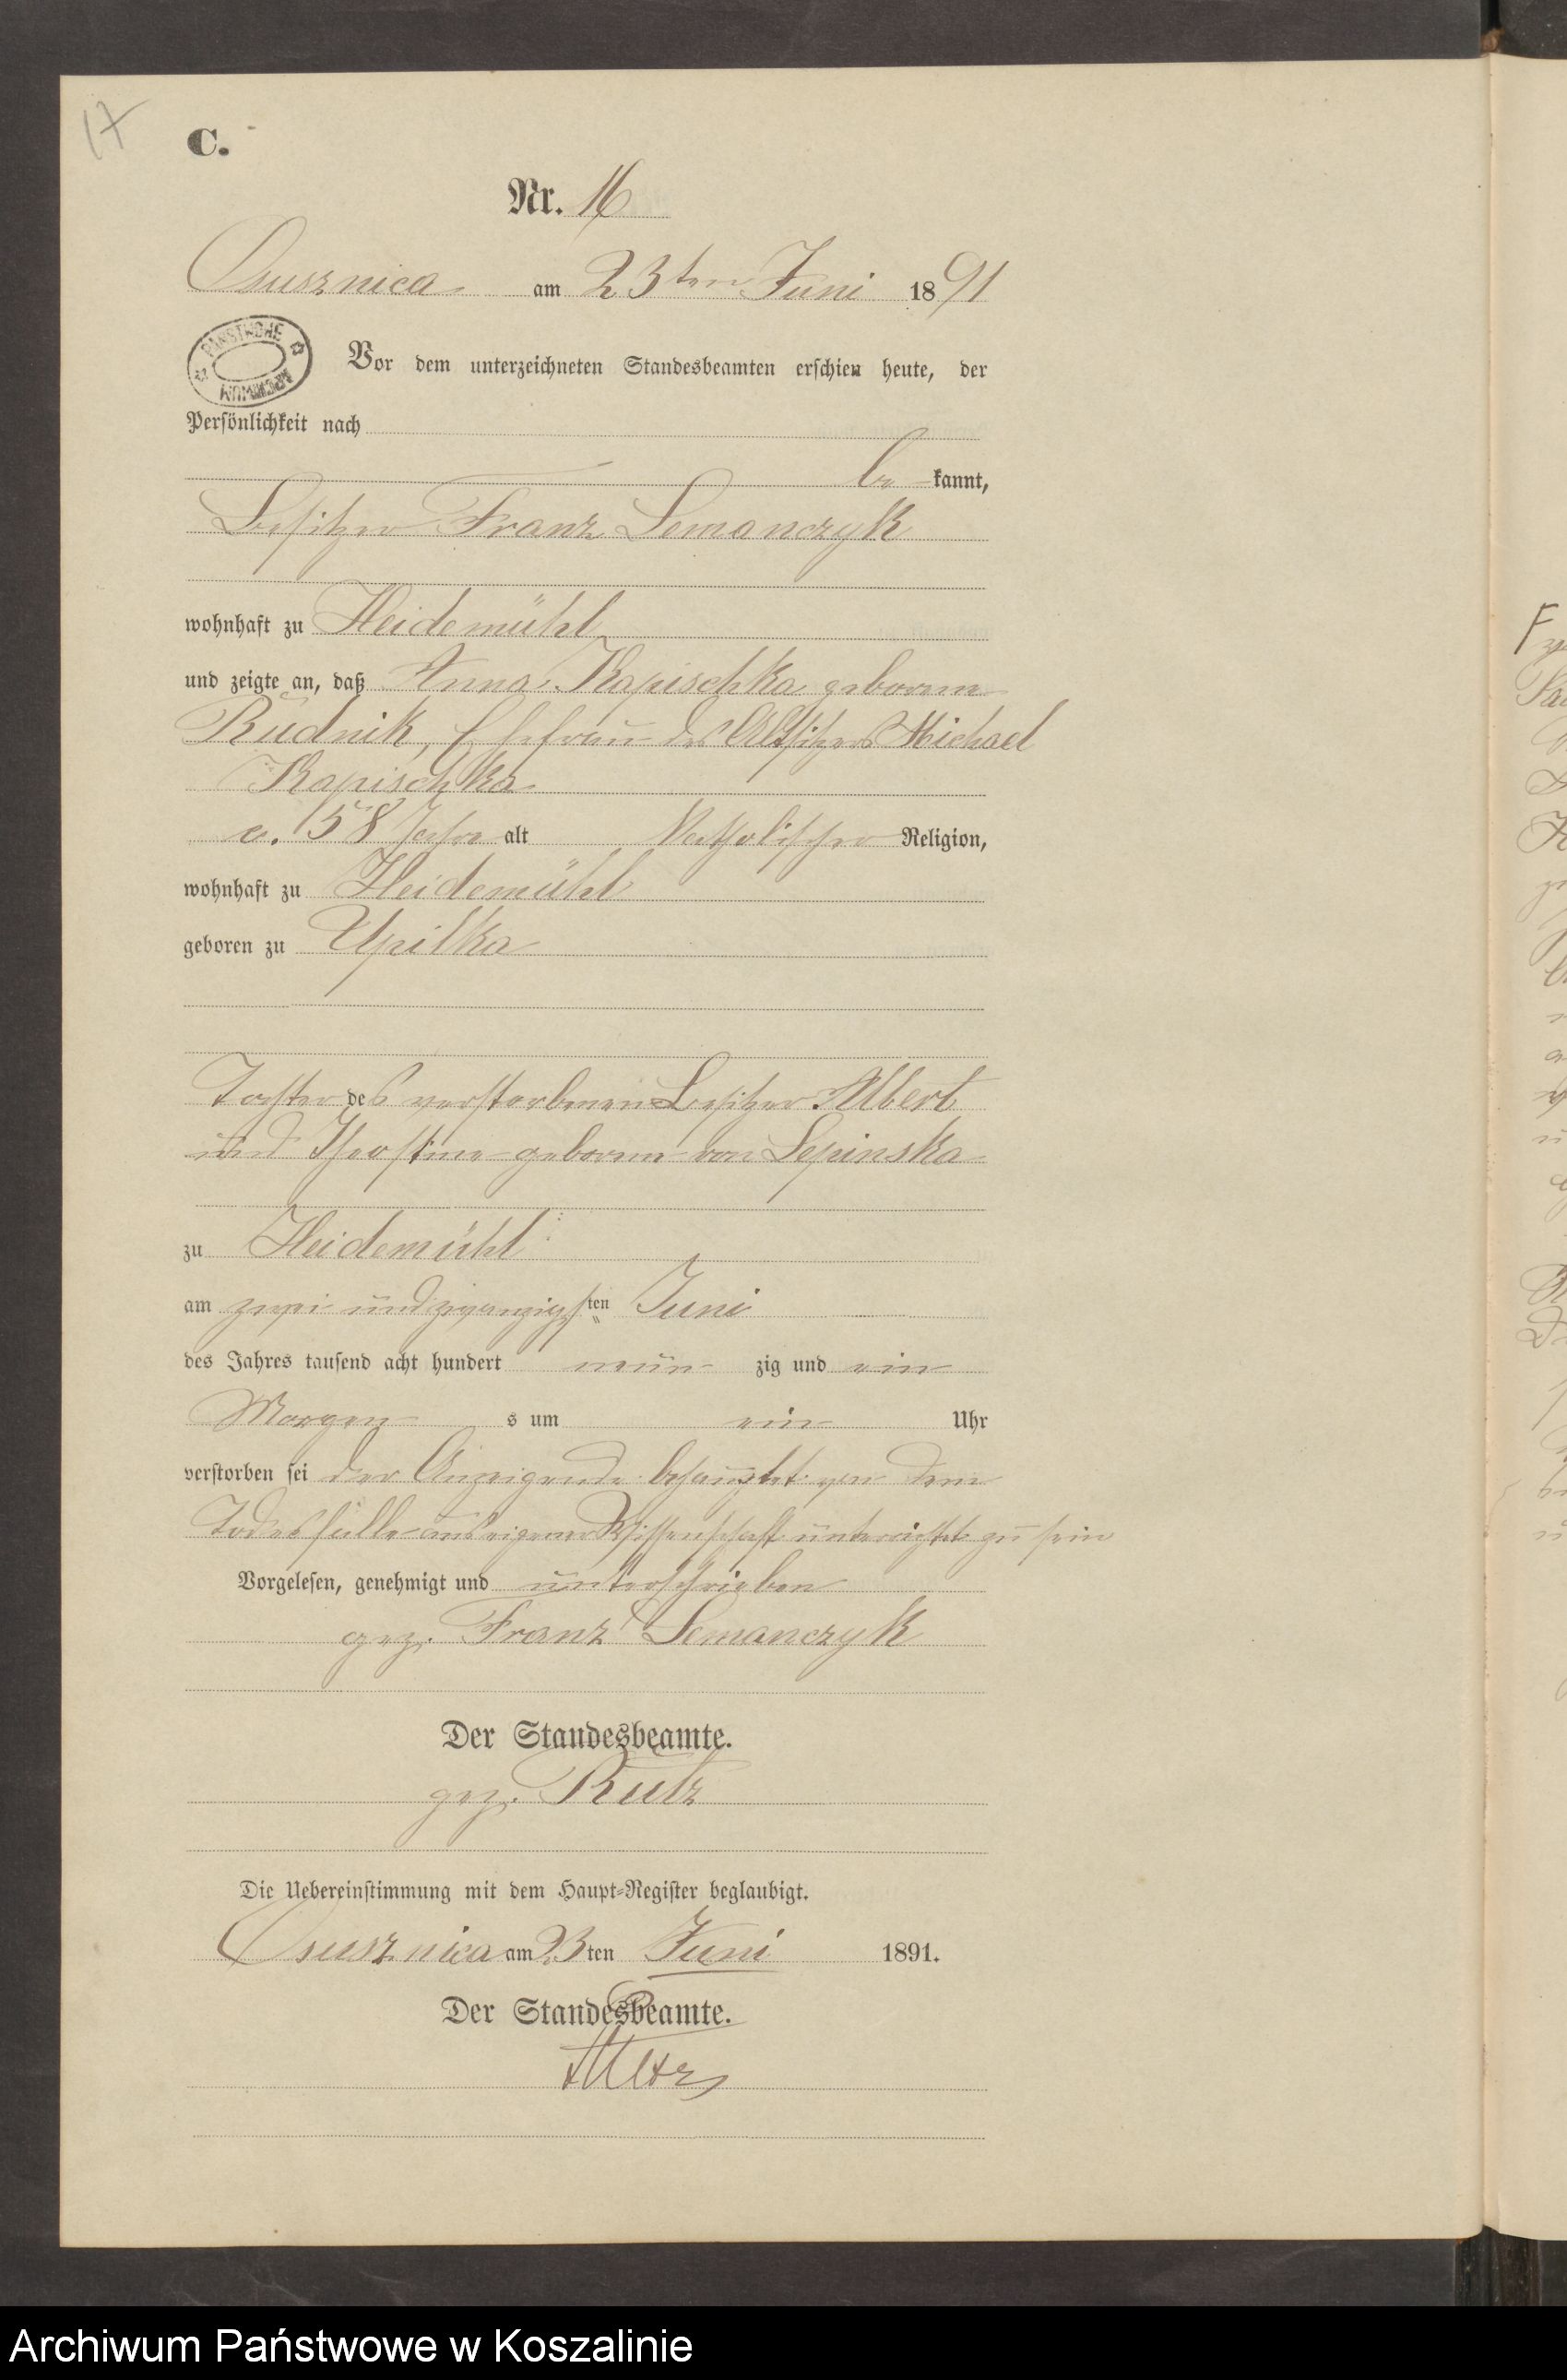 17
C.
Nr. 16
Ossusznica am 23ten Juni 1891
PAŃSTWOWE ARCHIWUM
Vor dem unterzeichneten Standesbeamten erschien heute, der
Persönlichkeit nach
be kannt,
Besitzer Franz Lemanczyk
wohnhaft zu Heidemühl
und zeigte an, daß Anna Kapischka geborene
Rudnik, Ehefrau des Altsitzers Michael
Kapischka
58 Jahre alt Katholischer Religion,
wohnhaft zu Heidemühl
geboren zu Upilka
Tochter des verstorbenen Besitzer Albert
und geborene von Lepinska
zu Heidemühl
am zwei und zwanzigsten Juni
des Jahres tausend acht hundert neun zig und ein
Morgen s um ein Uhr
verstorben sei der Anzeigende behauptet von dem
Todesfalle aus eigener Wissenschaft unterrichtet zu sein
Vorgelesen, genehmigt und unterschrieben
gez. Franz Lemanczyk
Der Standesbeamte.
gez. Rutz
Die Uebereinstimmung mit dem Haupt-Register beglaubigt.
Ossusznica am 23ten Juni 1891.
Der Standesbeamte.
Rutz
Archiwum Państwowe w Koszalinie